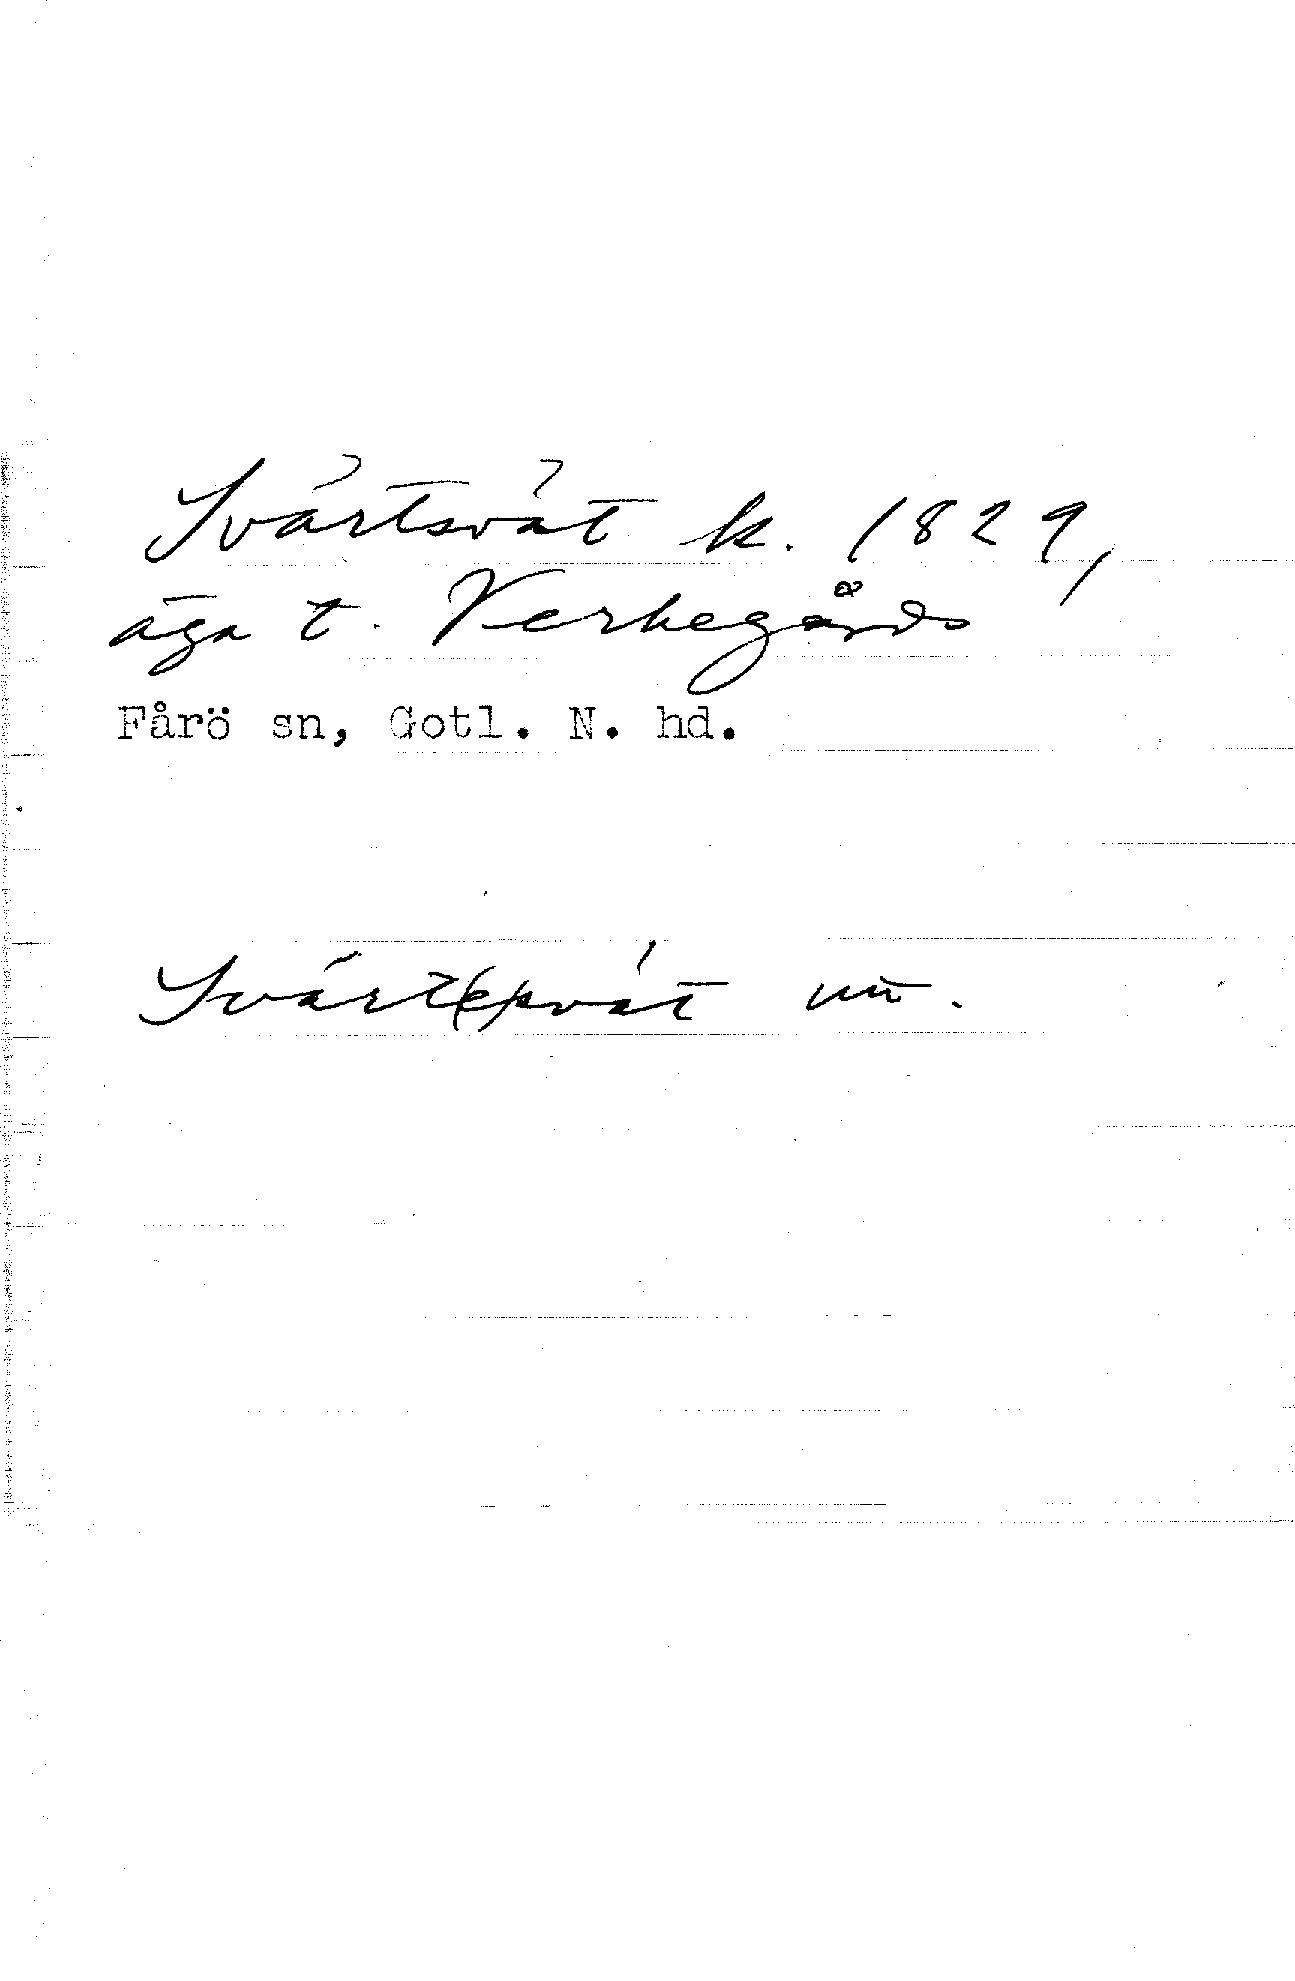 Svartsvät k. 1829,
äga t. Verkegårds
Fårö sn, Gotl. N. hd.
Svart(e)svät nu.